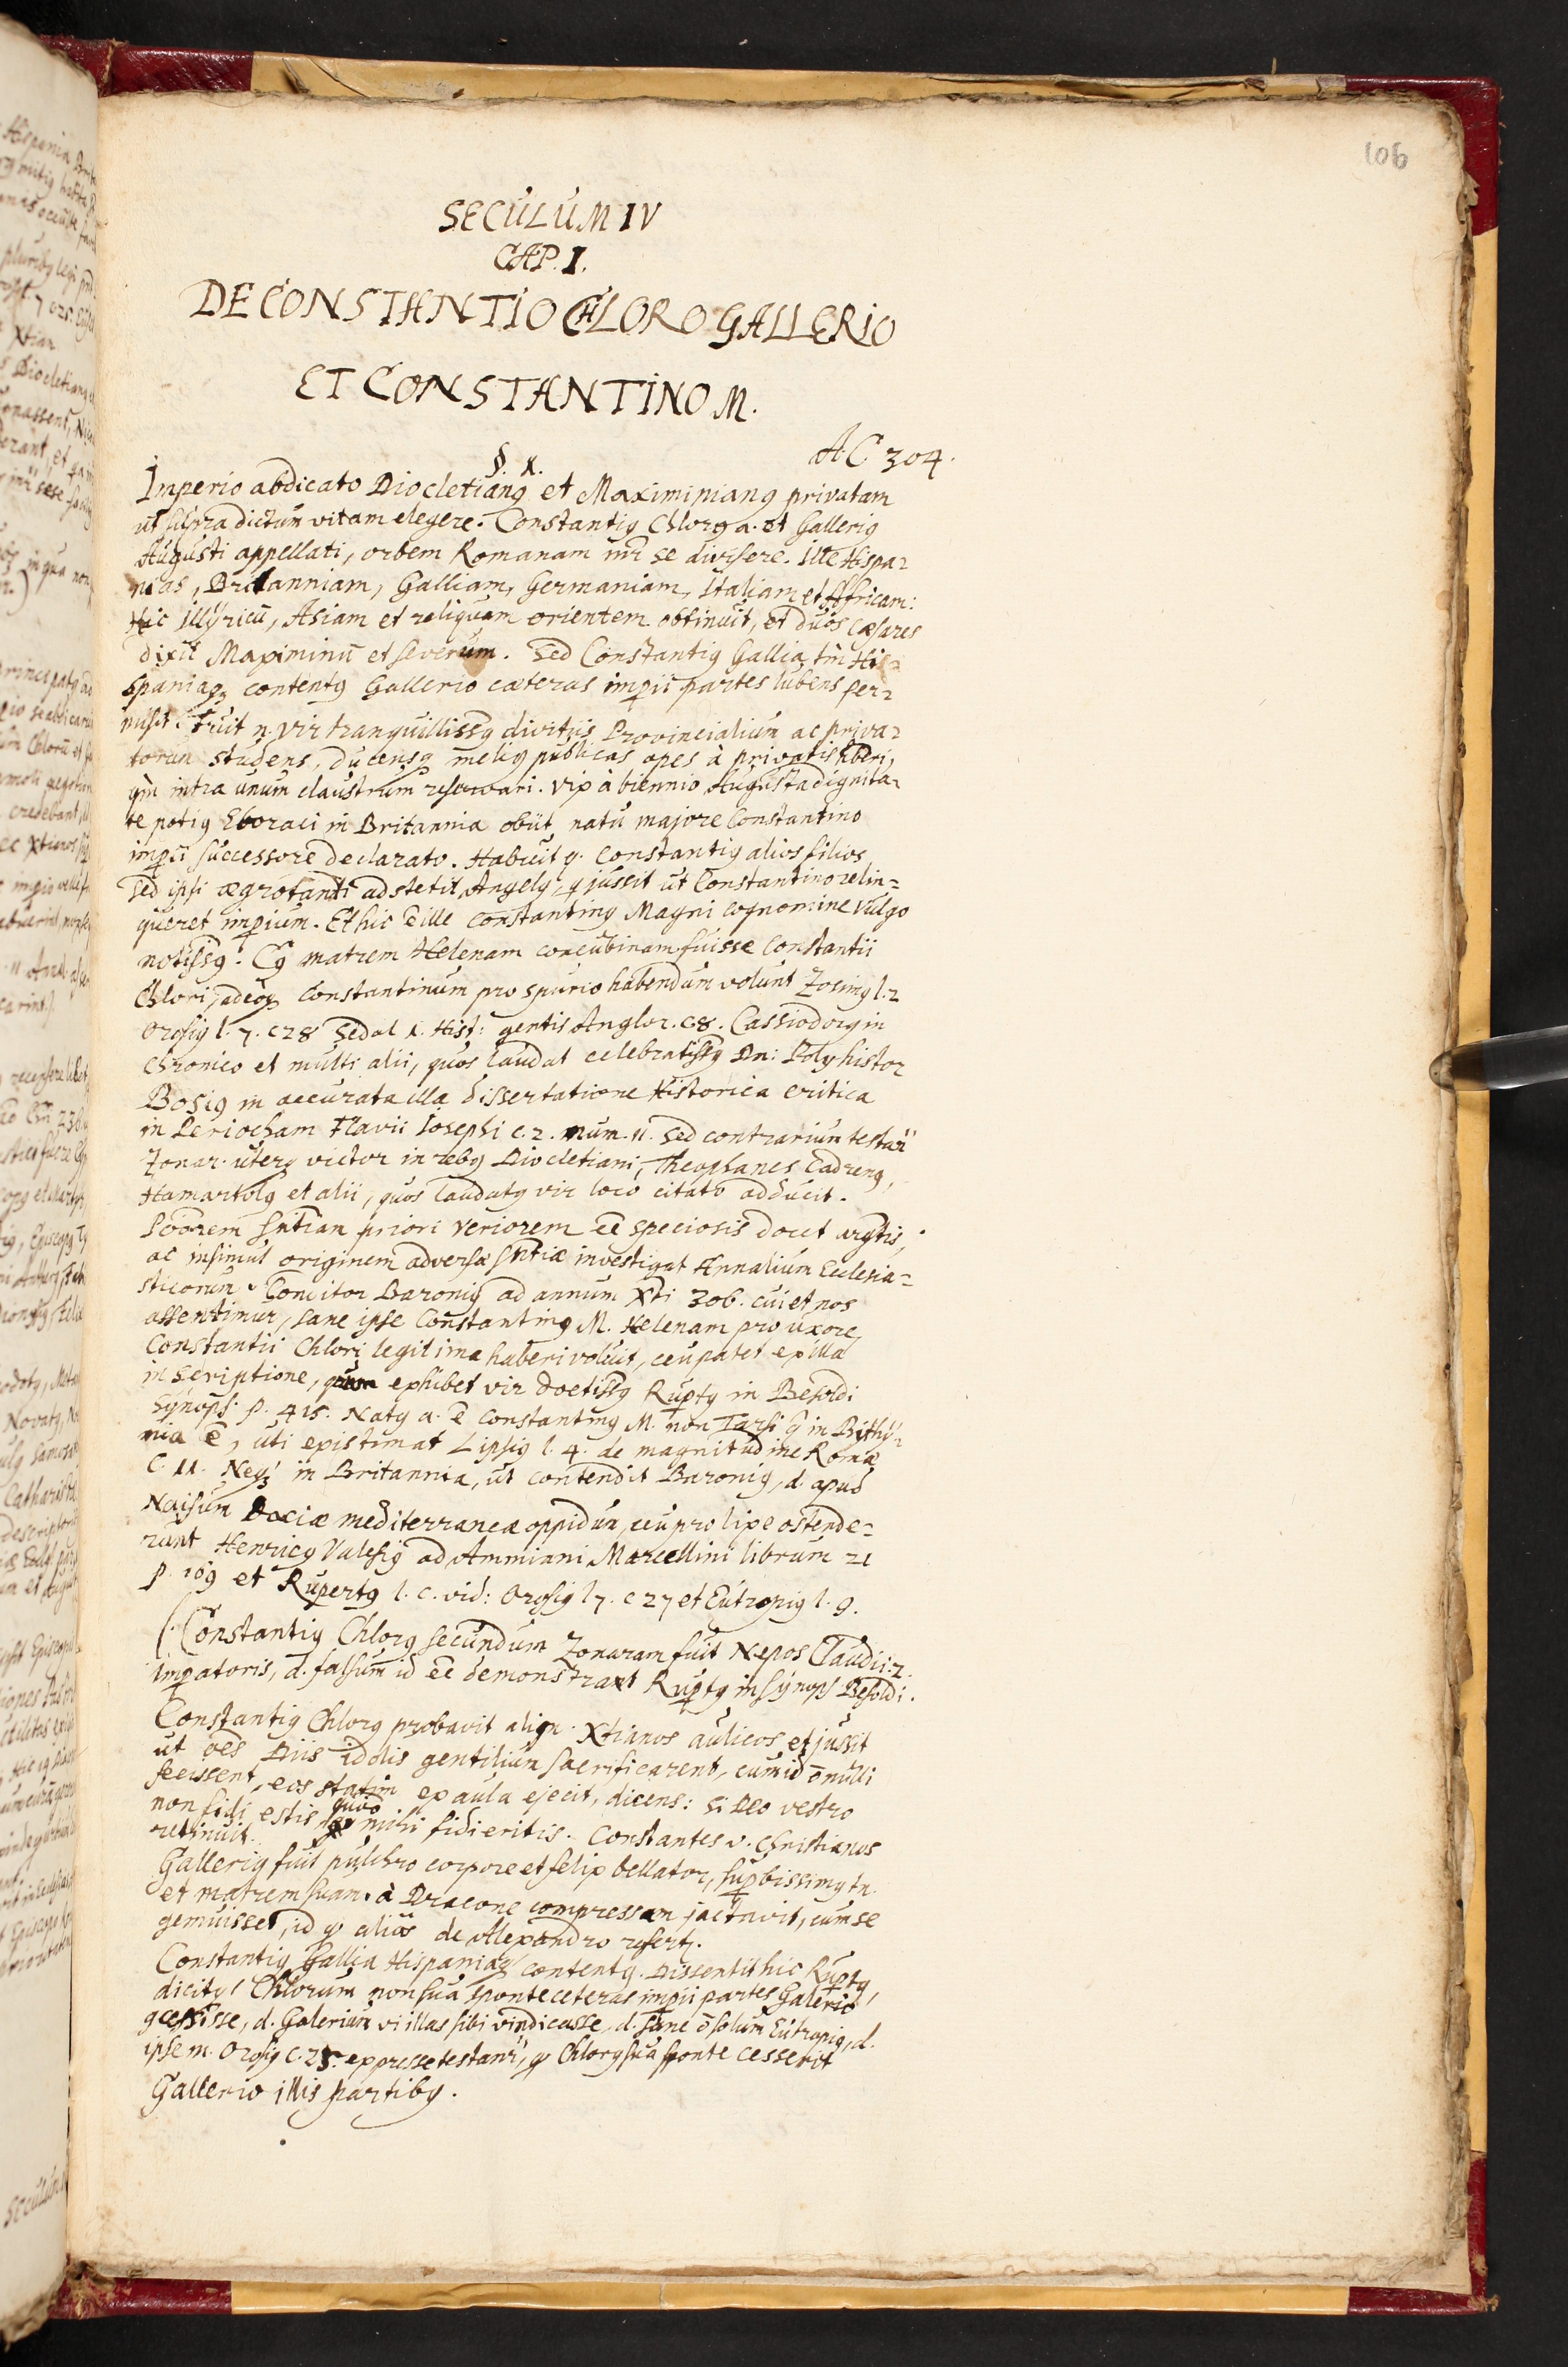 106
SECULUM IV
CAP. I.
DE CONSTANTIO CHLORO GALLERIO
ET CONSTANTINO M.
§. 1. A. C 304.
Imperio abdicato Diocletiang et Maximiniang privatam
ut supra dictum vitam elegere. Constantig Chlorg a. et Gallerig
Augusti appellati, orbem Romanam inr̃ se divisere. Ille Hispa=
nias, Britanniam, Galliam, Germaniam, Italiam et Affricam:
Hic illÿricũ, Asiam et reliquam orientem obtinuit, et duos cæsares
dixit Maximinũ et severum. Sed Constantig Gallia tm̃ Hi=
spaniaqz contentg Gallerio cæteras impii partes lubens per=
misit. Fuit n. vir tranquillissg divitiis Provincialium ac priva=
torum studens, ducensqz melig publicas opes à privatis haberi,
qm̃ intra unum claustrum reservari. Vix à biennio Augusta dignita=
te potig Eboraci in Britannia obiit natu majore Constantino
impii successore declarato. Habuit q. Constantig alios filios,
sed ipsi ægrotanti adstetit Angelg, q jussit ut Constantino relin=
queret impium. Et hic ẽ ille Constanting Magni cognomine vulgo
notissg. Cg matrem Helenam concubinam fuisse Constantii
Chlori, adeoqz Constantinum pro spurio habendum volunt Zosimg l. 2
Orosig l. 7. c 28 Sedal 1. Hist: gentis Anglor. c 8. Cassiodorg in
Chronico et multi alii, quos laudat celebratissg Dn: Polyhistor
Bosig in accurata illa dissertatione Historica critica
in Periocham Flavii Iosephi c. 2. num. 11. sed contrarium testãr
Zonar. uterqz victor in rebg Diocletiani, Theophanes Cadreng,
Hamartolg et alii, quos laudatg vir loco citato adducit.
Pöörem sntiam priori veriorem eẽ speciosis docet argtis,
ac insimul originem adversæ sntiæ investigat Annalium Ecclesia=
sticorum Conditor Baronig ad annum Xti 306. cui et nos
assentimur, sane ipse Constanting M. Helenam pro uxore
Constantii Chlori legitima haberi voluit, ceu patet ex illa
inscriptione, quam exhibet vir doctissg Ruptg in Besoldi
Synops. p. 415. Natg a. ẽ Constanting M. non Tarsi q̃ in Bithÿ=
nia ẽ, uti existimat Lipsig l. 4. de magnitudine Romæ
C. 11. Neqz in Britannia, ut contendit Baronig, d. apud
Naisum Daciæ mediterraneæ oppidum, ceu prolixe ostende=
runt Henricg Valesig ad Ammiani Marcellini librum 21
p. 169 et Rupertg l. c. vid: Orosig l 7. c 27 et Eutropig l. 9.
(Constantig Chlorg secundum Zonaram fuit Nepos Claudii 2.
Impatoris, d. falsum id eẽ demonstrant Ruptg in Synops Besoldi.
Constantig Chlorg probavit aliqn. Xtianos aulicos et jussit
ut oẽs Diis idolis gentilium sacrificarent, cum id õ nulli
fecissent, eos statim ex aula ejecit, dicens: si Deo vestro
non fidi estis quõo mihi fidi eritis. Constantes v. Christianos
retinuit.
Gallerig fuit pulchro corpore et felix bellator, supbissimg tn.
et matrem suam à Dracone compressam jactavit, cum se
gemuisset, id q alias de Alexandro refert.
Constantig Gallia Hispaniaqz contentg. Dissentit hic Ruptg,
dicitqz Chlorum non sua sponte ceteras impii partes Galerio
gcessisse, d. Galerium vi illas sibi vindicasse, d. sane õ solum Eutropig, d.
ipse m. Orosig c. 25. expresse testanr̃, q Chlorg sua sponte cesserit
Gallerio illis partibg.